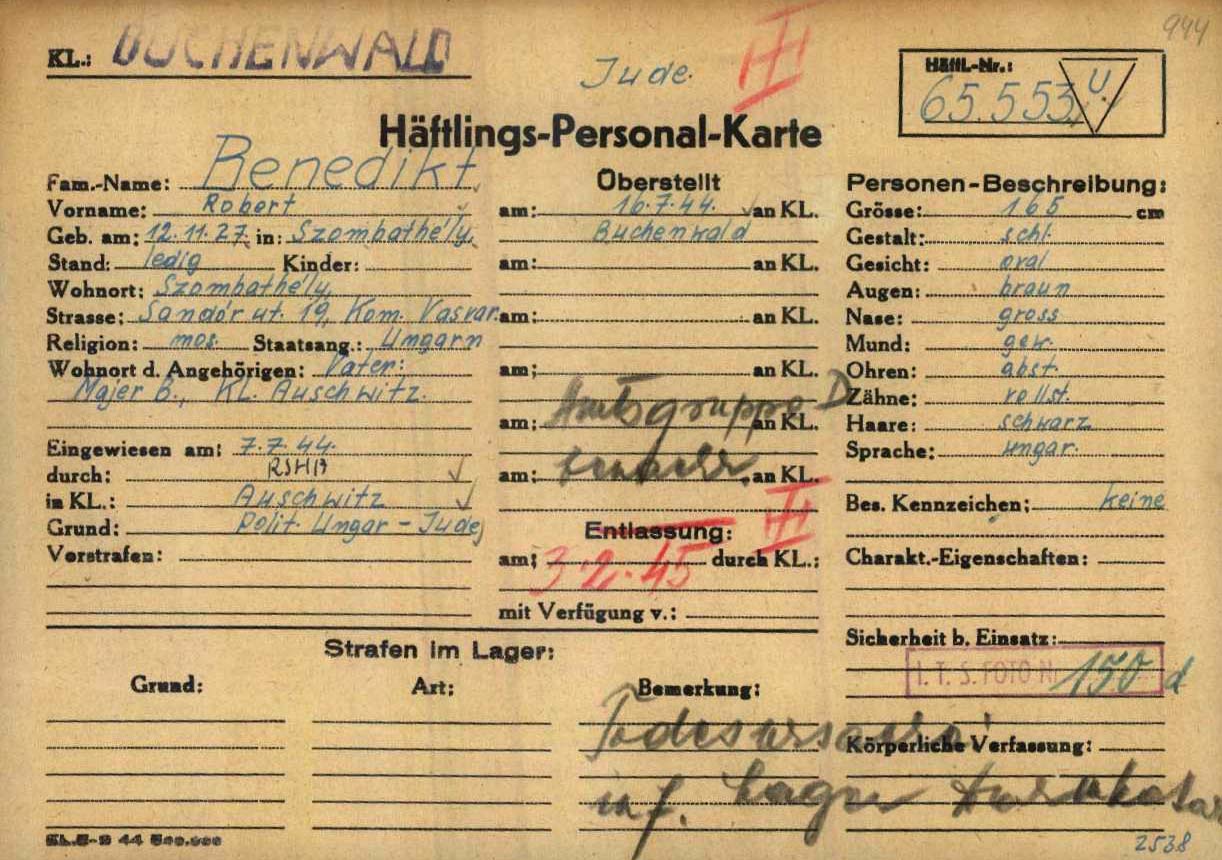 944
KL.: BUCHENWALD
Jude.
III
Häftl.-Nr.:
65.553 U
Häftlings-Personal-Karte
Fam.-Name: Benedikt
Vorname: Robert
Geb. am: 12.11.27 in: Szombathely,
Stand: ledig Kinder:
Wohnort: Szombathely,
Strasse: Sandór ut. 19, Kom. Vasvar.
Religion: mos. Staatsang.: Ungarn
Wohnort d. Angehörigen: Vater:
Majer B., KL. Auschwitz.
Eingewiesen am: 7.7.44.
durch: RSHA
in KL.: Auschwitz
Grund: Polit. Ungar - Jude
Vorstrafen:
Überstellt
am: 16.7.44. an KL.
Buchenwald
am: an KL.
am: an KL.
am: an KL.
Amtsgruppe D
am: an KL.
am: an KL.
III
Entlassung:
am: 3.2.45 durch KL.:
mit Verfügung v.:
Personen-Beschreibung:
Grösse: 165 cm
Gestalt: schl.
Gesicht: oval
Augen: braun
Nase: gross
Mund: gew.
Ohren: abst.
Zähne: vollst.
Haare: schwarz
Sprache: ungar.
Bes. Kennzeichen: keine
Charakt.-Eigenschaften:
Sicherheit b. Einsatz:
I. T. S. FOTO Nr. 150 d
Körperliche Verfassung:
Strafen im Lager:
Grund: Art: Bemerkung:
KL.5-9 44 500.000
2538